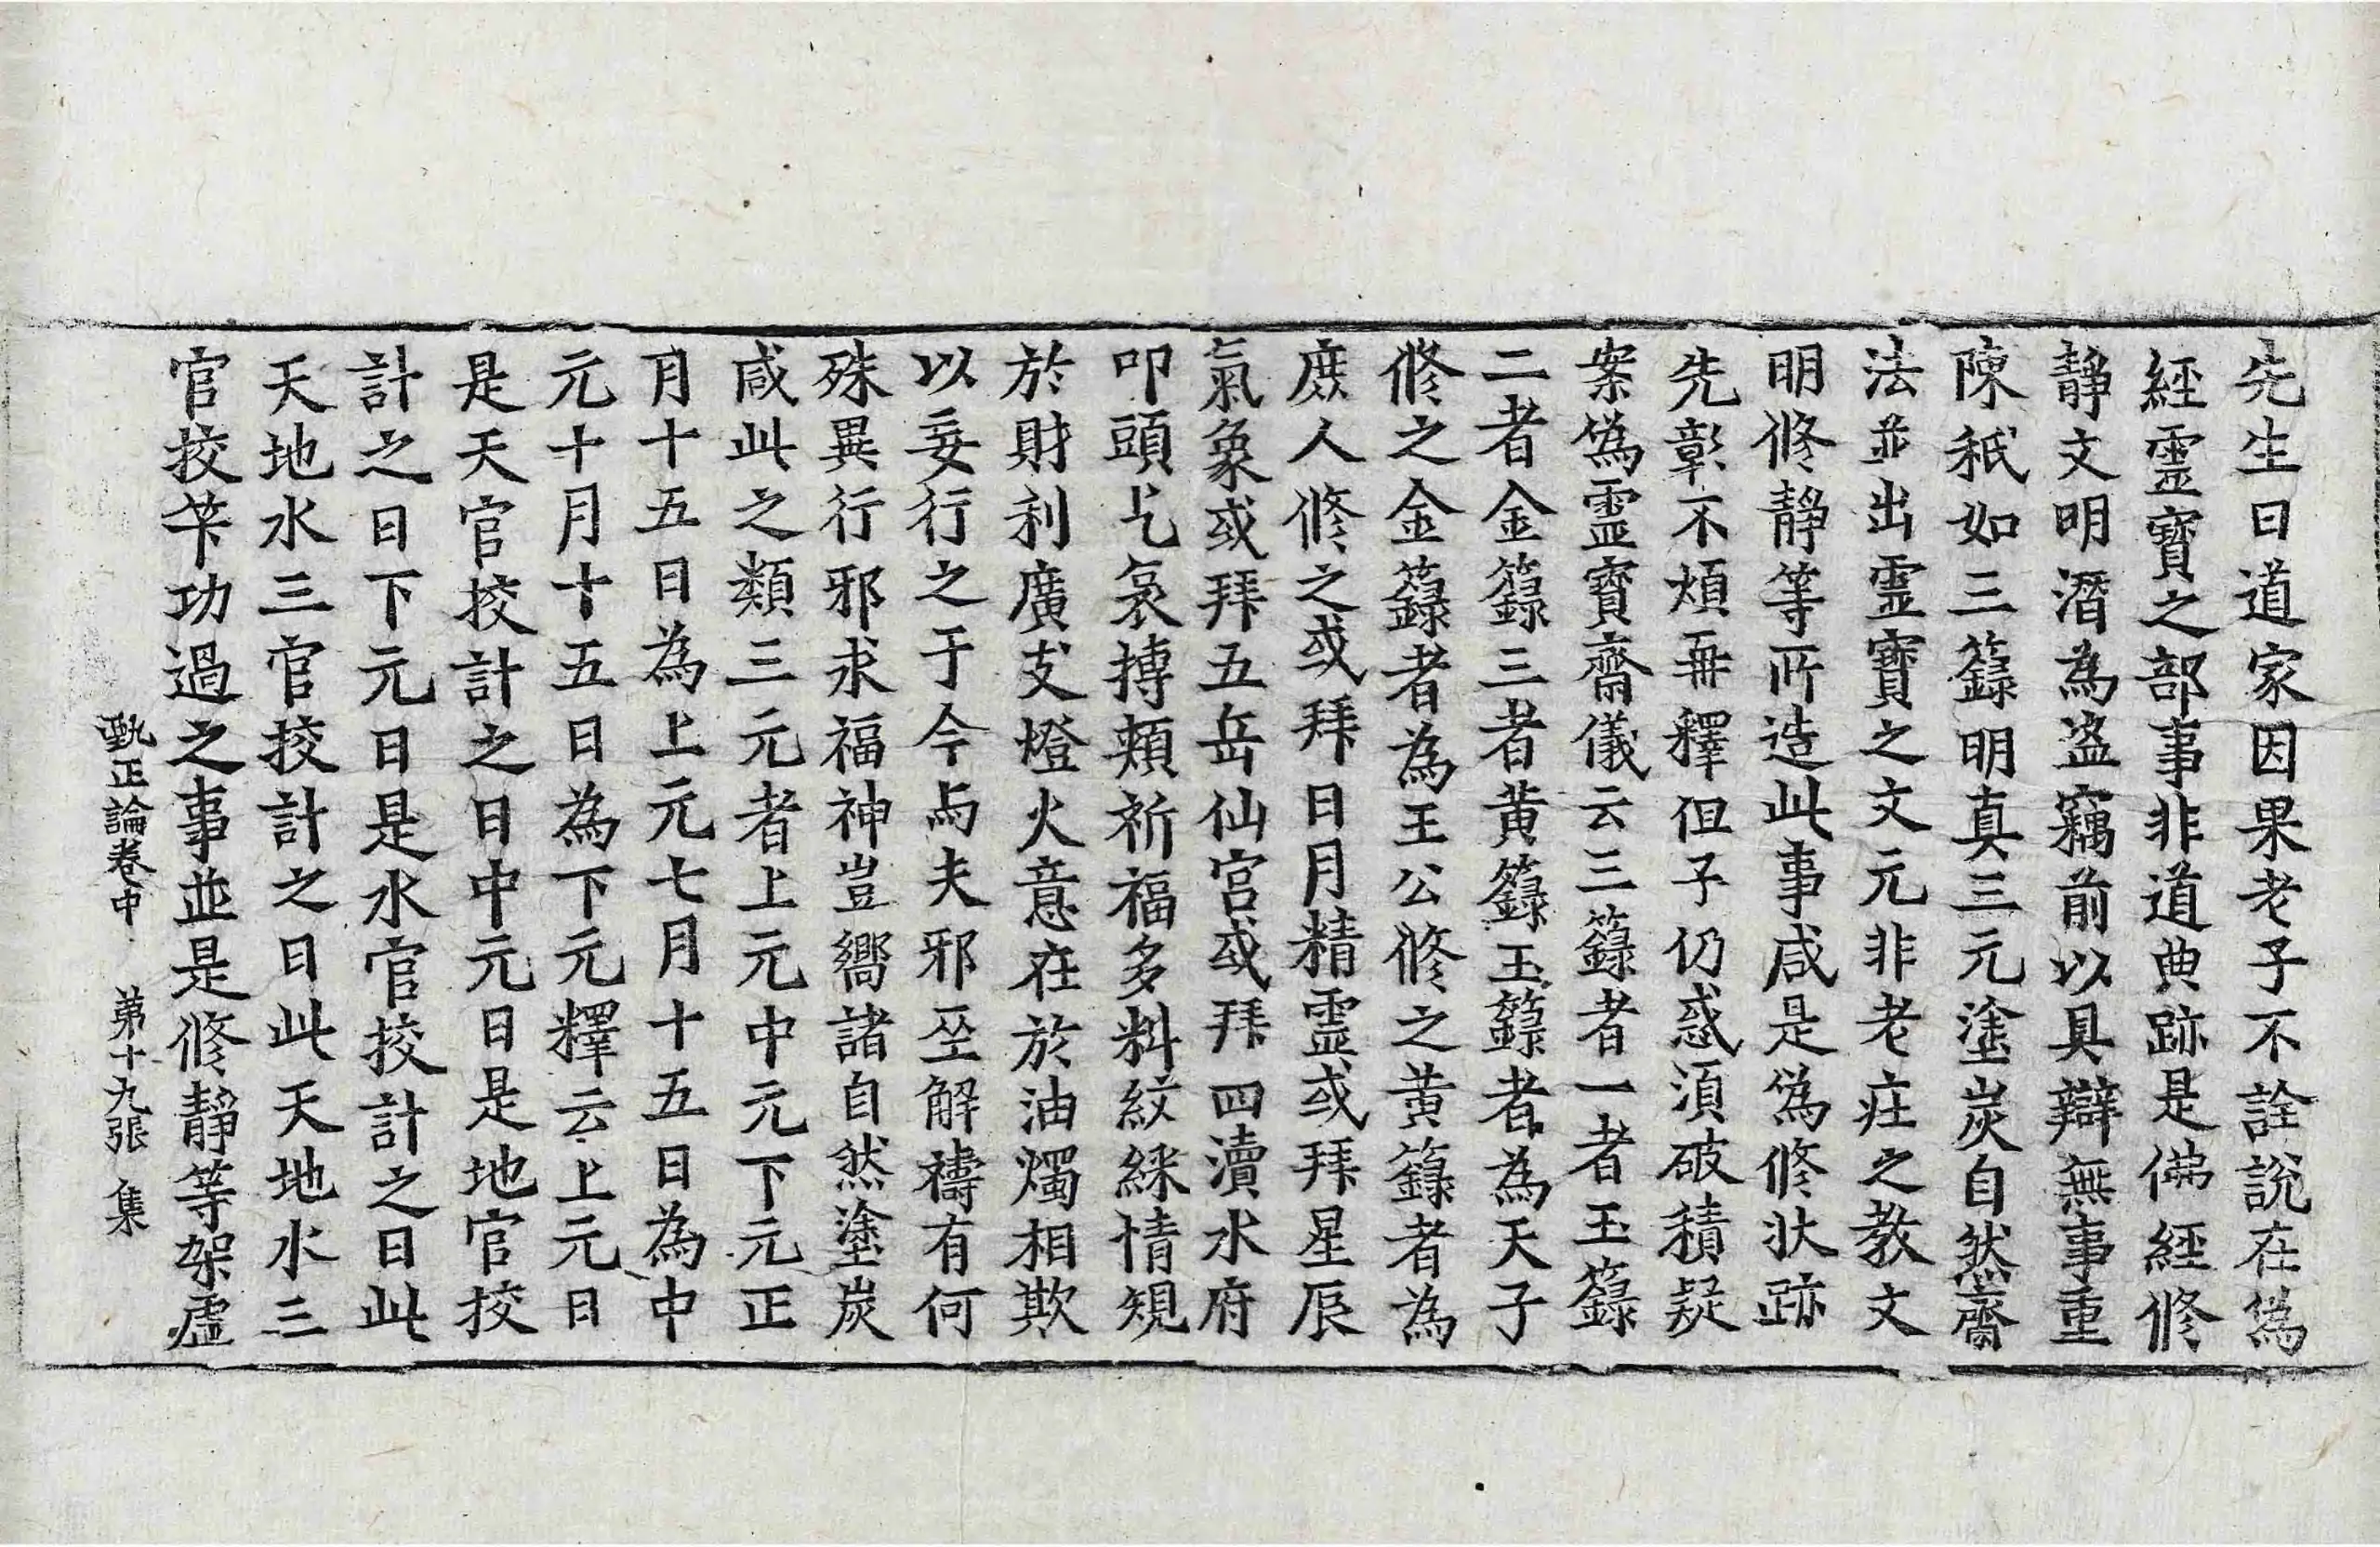 先生曰道家因果老子不詮說在偽
經靈寶之部事非道典跡是佛經修
靜文明潛為盜竊前以具辯無事重
陳秖如三籙明真三元塗炭自然齋
法並出靈寶之文元非老莊之教文
明修靜等所造此事咸是偽修狀跡
先彰不煩再釋但子仍惑須破積疑
案偽靈寶齋儀云三籙者一者玉籙
二者金籙三者黃籙玉籙者為天子
修之金籙者為王公修之黃籙者為
庶人修之或拜日月精靈或拜星辰
氣象或拜五岳仙宮或拜四瀆水府
叩頭乞哀搏頰祈福多料紋綵情規
於財利廣支燈火意在於油燭相欺
以妄行之于今與夫邪巫解禱有何
殊異行邪求福神豈嚮諸自然塗炭
咸此之類三元者上元中元下元正
月十五日為上元七月十五日為中
元十月十五日為下元釋云上元日
是天官挍計之日中元日是地官挍
計之日下元日是水官挍計之日此
天地水三官挍計之日此天地水三
官挍筭功過之事並是修靜等架虛
甄正論卷中 第十九張 集